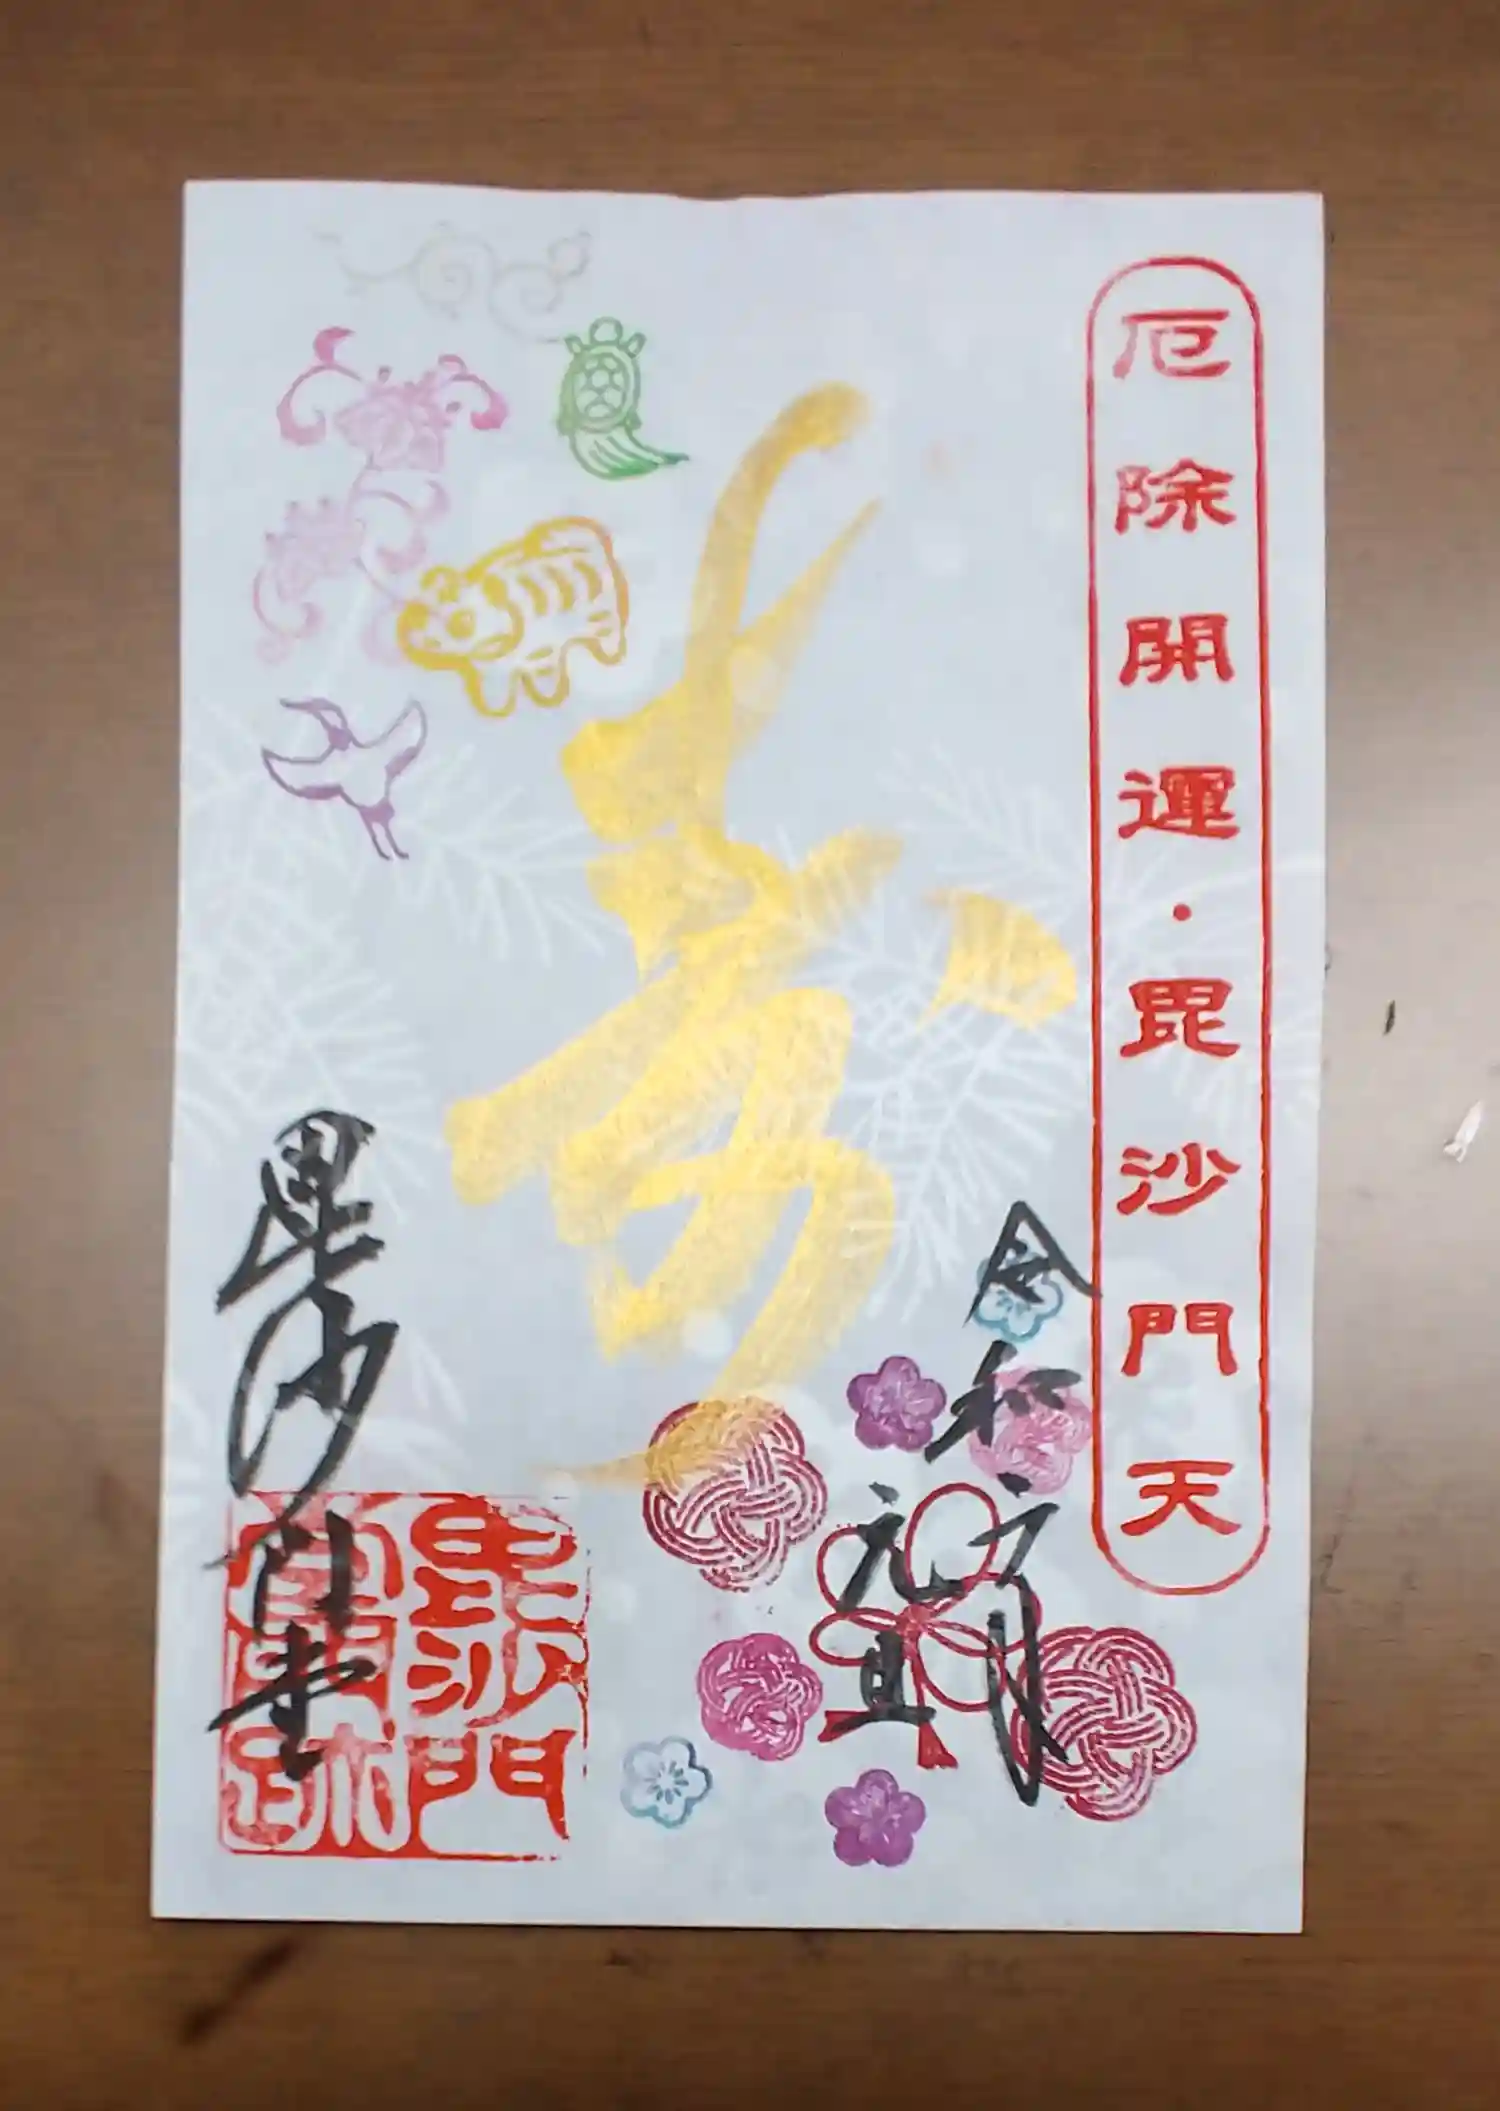 厄除開運・毘沙門天
令和
元旦
寿
毘沙門堂
毘沙門